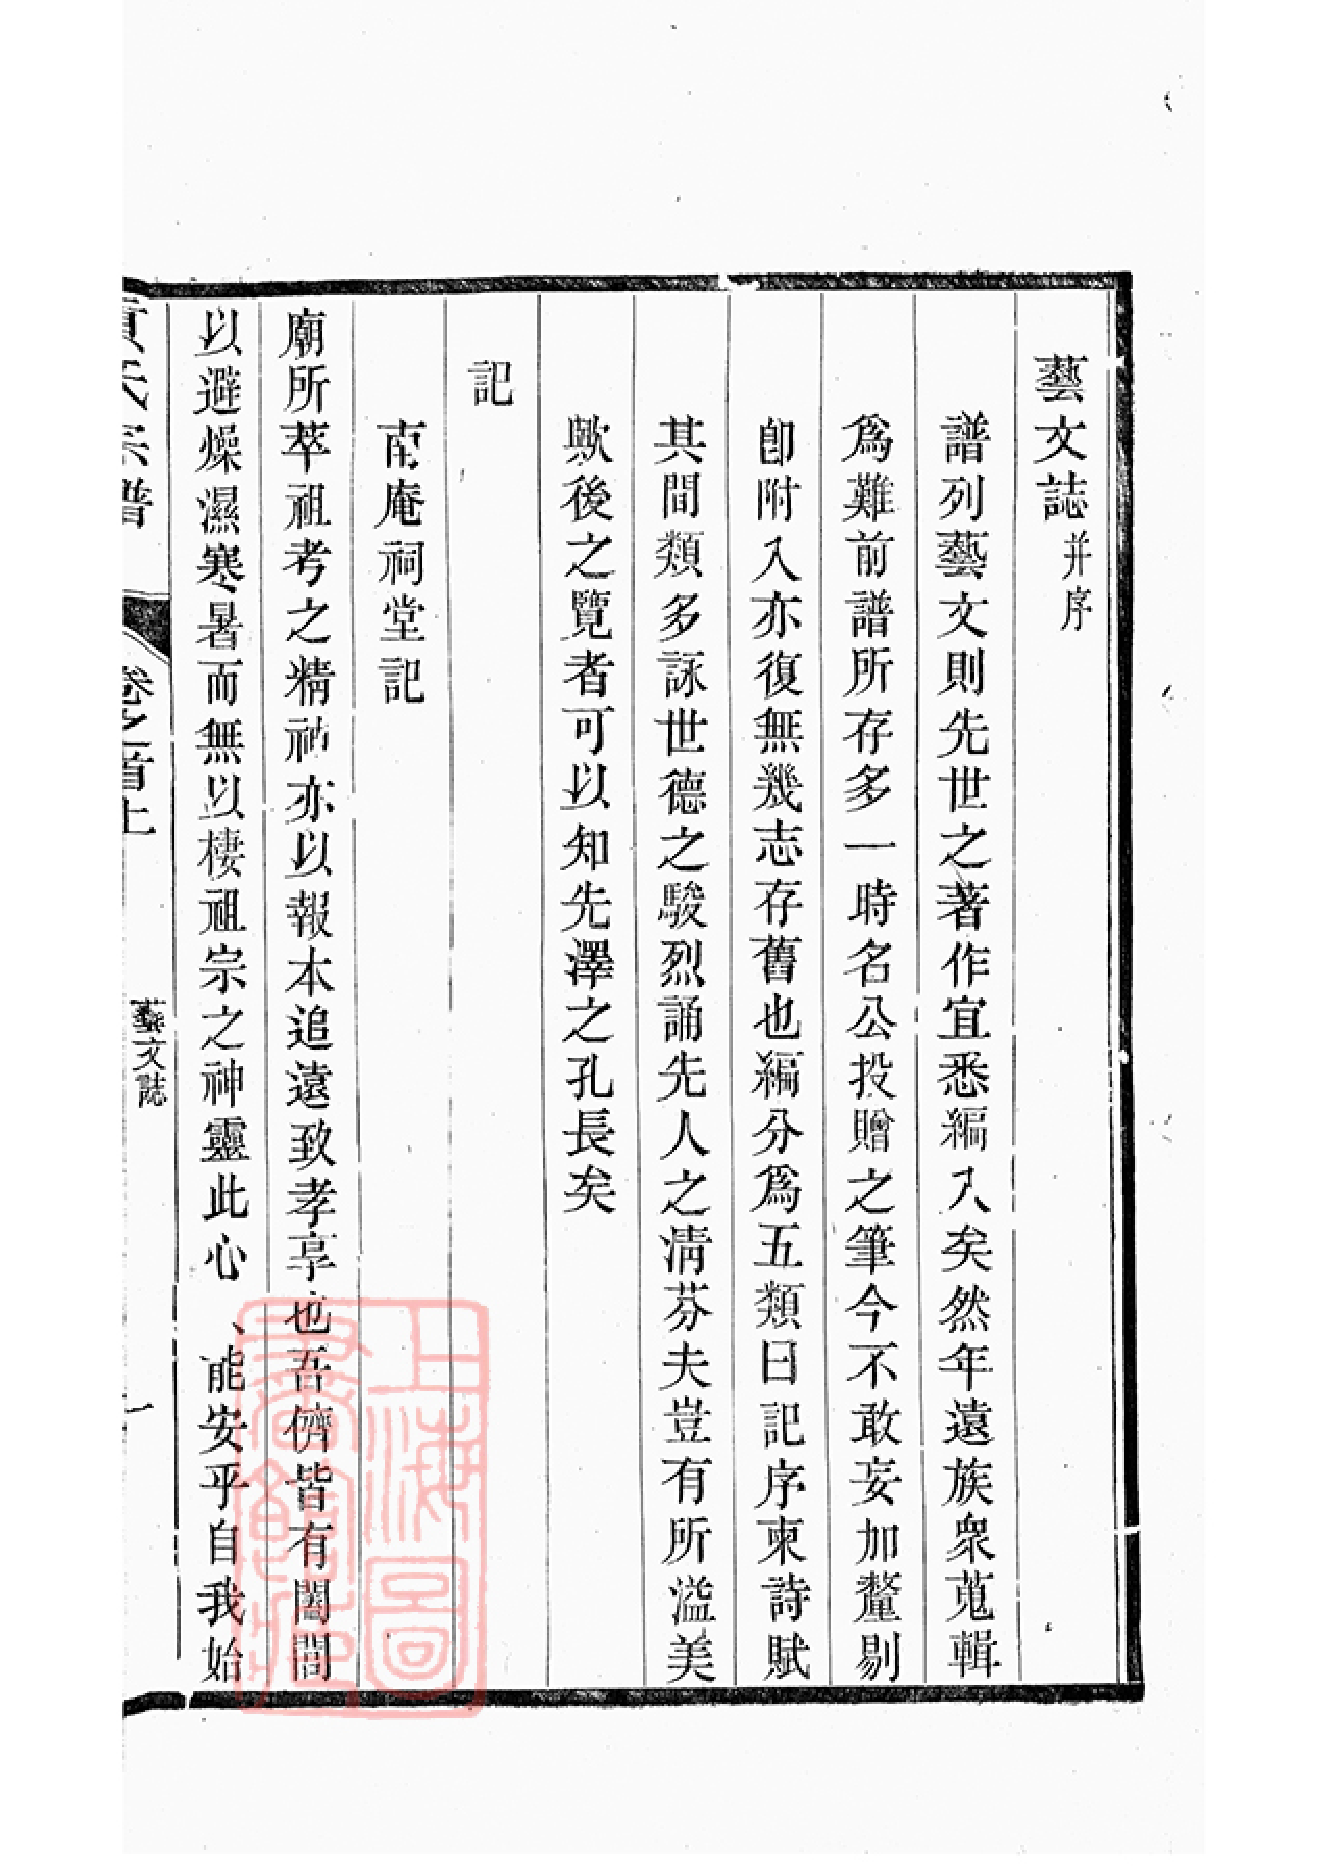 藝文誌并序
譜列藝文則先世之著作宜悉編入矣然年遠族衆蒐輯
爲難前譜所存多一時名公投贈之筆今不敢妄加釐剔
卽附入亦復無幾志存舊也編分爲五類曰記序柬詩賦
其間類多詠世德之駿烈誦先人之淸芬夫豈有所溢美
歟後之覽者可以知先澤之孔長矣
記
南庵祠堂記
廟所萃祖考之精神亦以報本追遠致孝享也吾儕皆有闔閭
以避燥濕寒暑而無以棲祖宗之神靈此心能安乎自我始
黃氏宗譜 卷之首上 藝文誌 一
上海圖書館藏